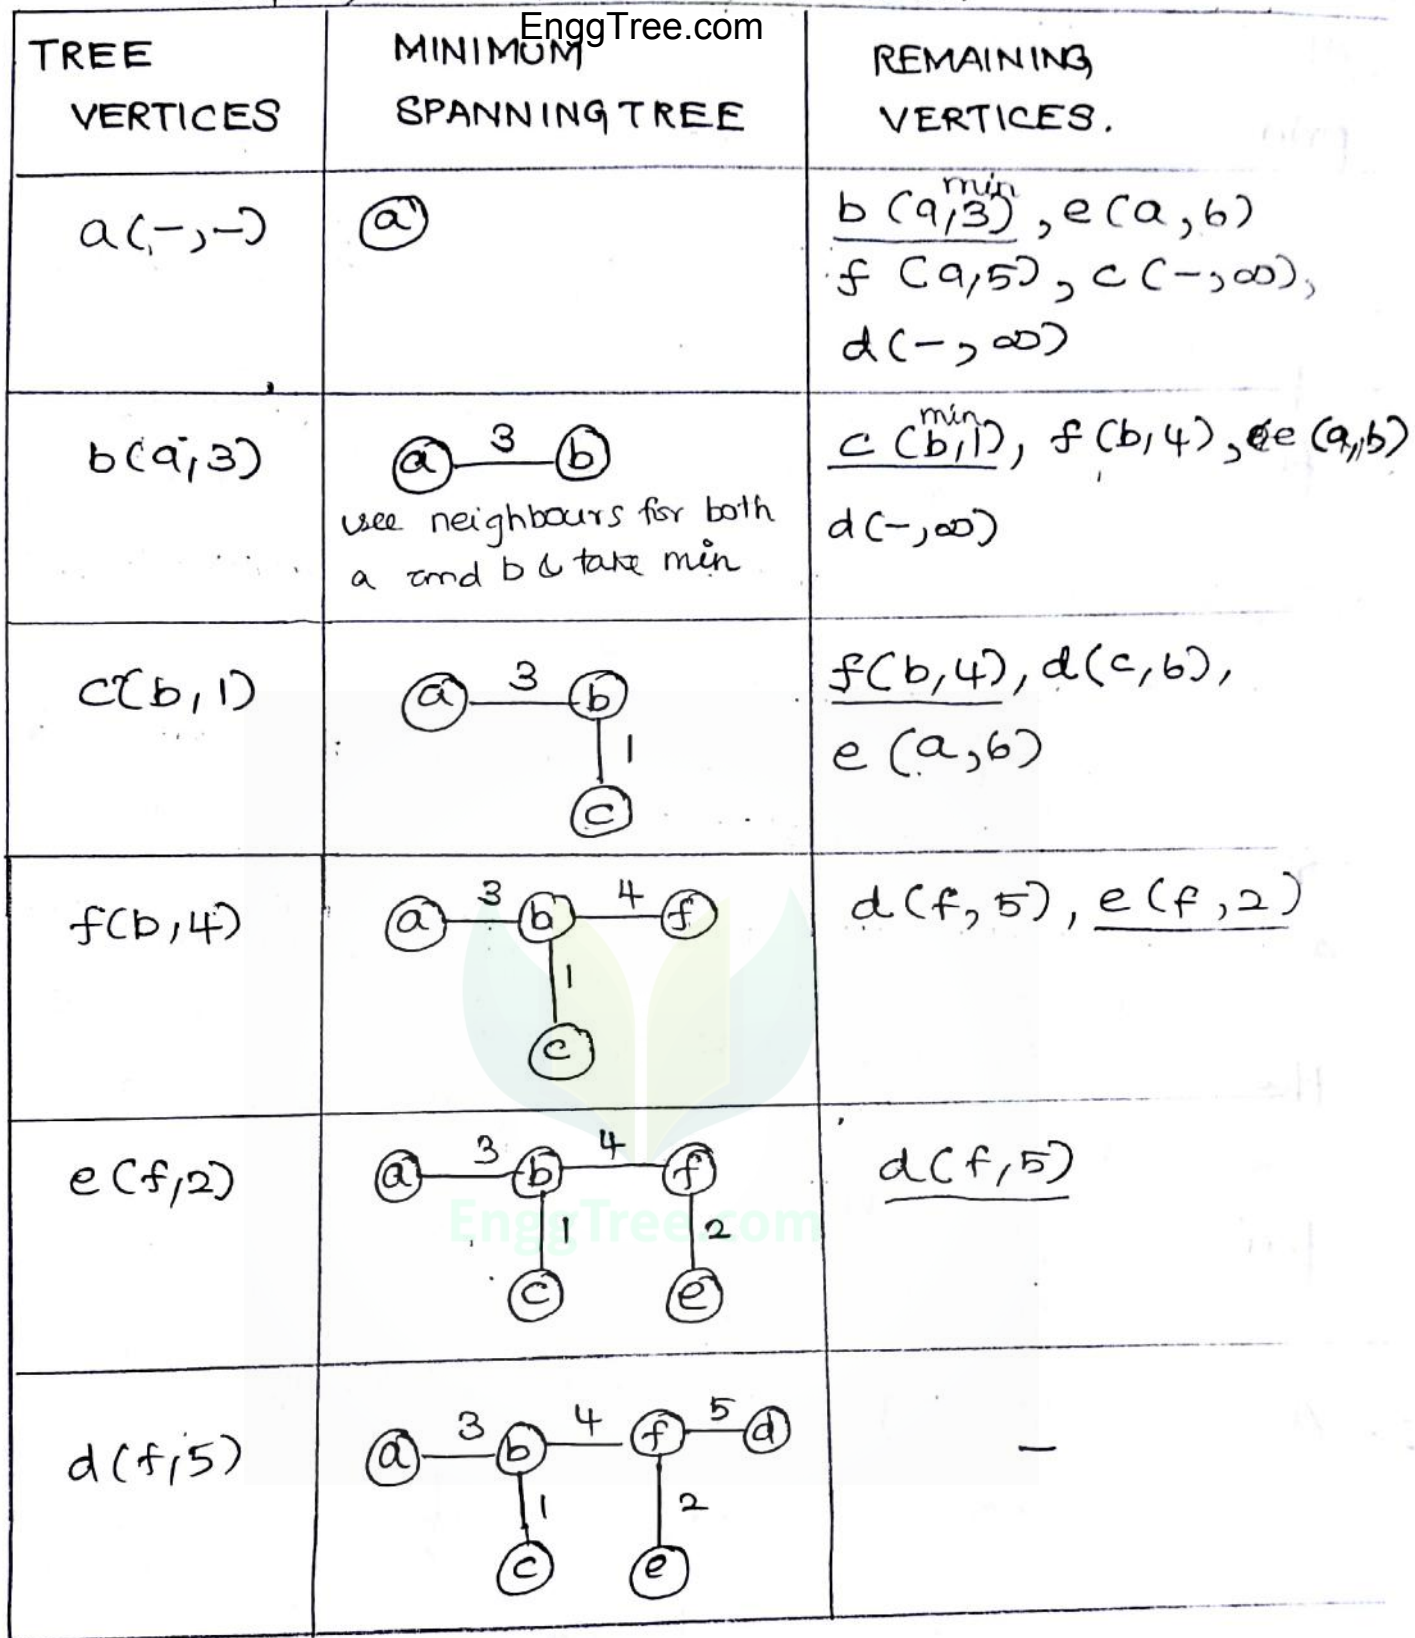 EnggTree.com
TREE
VERTICES
MINIMUM
SPANNING TREE
REMAINING
VERTICES.
a(-,-)
a
min
b (a,3), e(a,6)
f (a,5), c(-,∞),
d(-,∞)
b(a,3)
3
a b
see neighbours for both
a and b & take min
min
c (b,1), f(b,4), e (a,6)
d(-,∞)
c(b,1)
3
a b
1
c
f(b,4), d(c,6),
e (a,6)
f(b,4)
3 4
a b f
1
c
d(f,5), e(f,2)
e(f,2)
3 4
a b f
1 2
c e
d(f,5)
EnggTree.com
d(f,5)
3 4 5
a b f d
1 2
c e
-